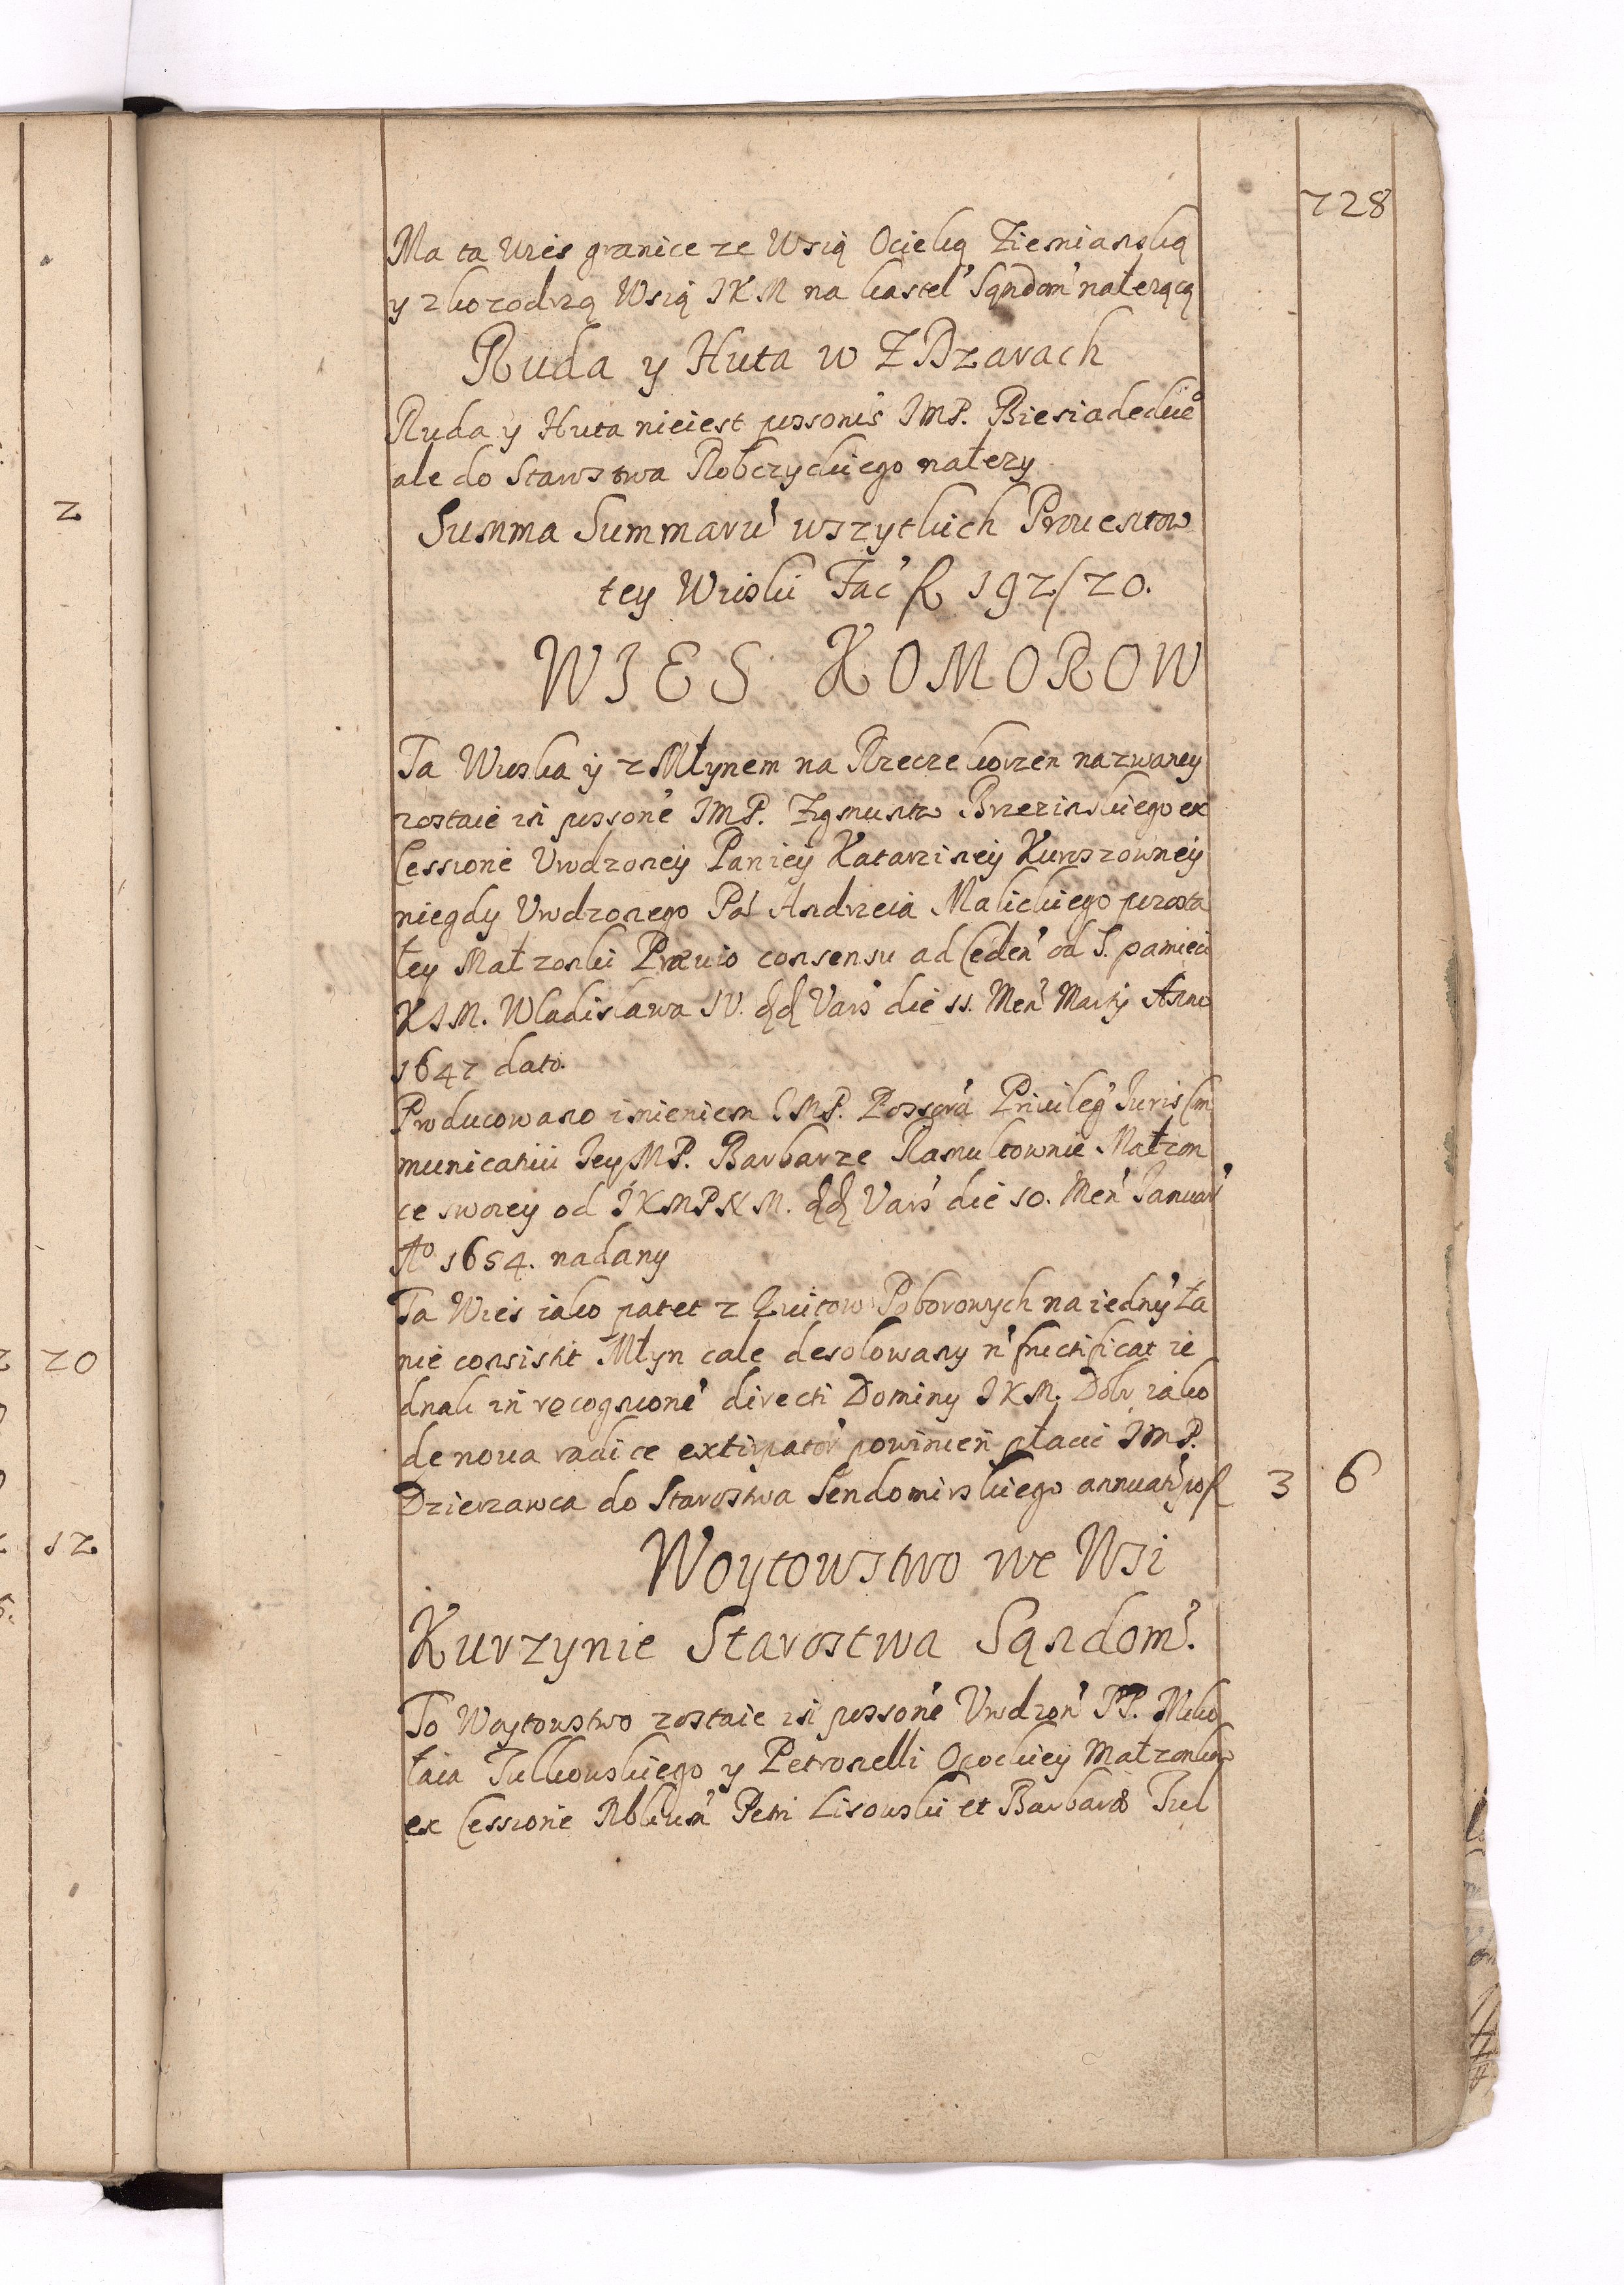 728
Ma ta Wies granice ze Wsią Ocieką Ziemianską
y z kozodrzą Wsią JKM na kastel' Sandom' nałezącą
Ruda y Huta w ZDzarach
Ruda y Huta nieiest possonis JMP. Biesiadeckie°
ale do Starostwa Robczyckiego nałezy
Summa Summaru' wszytkich Prouentow
tey Wioski Fac' fl 192/20.
WIES KOMOROW
Ta Wioska y z Młynem na Rzecze korzen nazwaney
zostaie in possone' JMP. Zygmunta Brzezinskiego ex
Cessione Urodzoney Paniey Katarziney Kurozowney
niegdy Urodzonego Pa' Andrzeia Malickiego pozosta
łey Małzonki Præuio consensu ad Ceden' od S. pamieci
KJM. Wladislawa IV. dd Vars' die 11. Men' Martij Anno
1647 dato.
Producowano imieniem JMP. Possora' Priuileg' Juris Com
municatiui JeyMP. Barbarze Ramultownie Małzon
ce swoiey od JKMPNM. dd Vars' die 10. Men' Januar'
A° 1654. nadany
Ta Wies iako patet z kwitow Poborowych na iedny' Ła
nie consistit Młyn cale desolowany n' fructificat ie
dnak in recognione' directi Dominy JKM. Dobr iako
de noua radice extirpator' powinien płacic JMP.
Dzierzawca do Starostwa Sendomirskiego annuati' po fl 3 6
Woytowstwo we Wsi
Kurzynie Starostwa Sandom'.
To Woytowstwo zostaie in possone' Urodzon' PP. Miko
łaia Tulkowskiego y Petronelli Opockiey Małzonkow
ex Cessione Nblium' Petri Lisowski et Barbaræ Tul
2
20
12